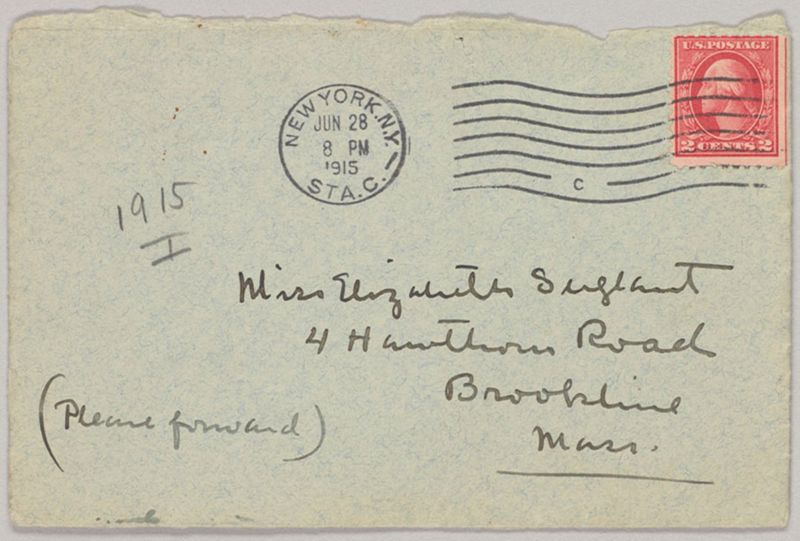 U.S. POSTAGE
2 CENTS 2
NEW YORK, N.Y.
JUN 28
8 PM
1915
STA. C.
C
1915
I
Miss Elizabeth Sergeant
4 Hawthorn Road
Brookline
Mass.
(Please forward)